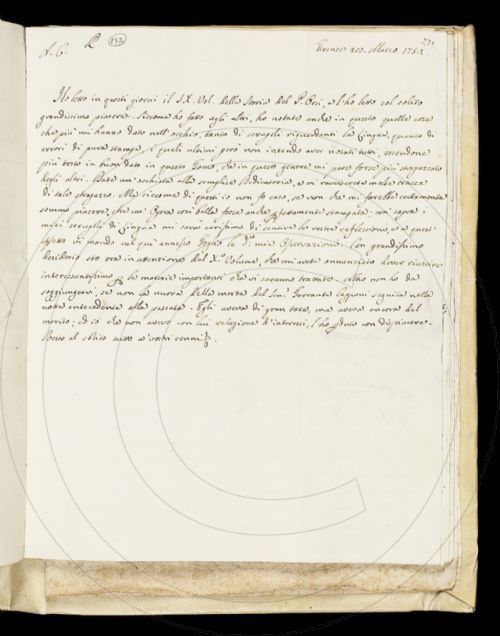 271
A. C. R 132 Firenze 20. Marzo 1752.
Ho letto in questi giorni il IX. Vol. della Storia del P. Orsi, e l'ho letto col solito
grandissimo piacere. Siccome ho fatto agli altri, ho notate anche in questo quelle cose
che più mi hanno dato nell'occhio, tanto di scrupoli riguardanti la Lingua, quanto di
errori di pura stampa, i quali ultimi però non intendo aver notati tutti, essendone
più tosto in buon dato in questo Tomo, che in questo genere mi pare forse più strapazzato
degli altri. Date un'occhiata alla semplice Dedicatoria, e vi ravviserete molte tracce
di tale strapazzo. Ma siccome di questi io non fo caso, se non che mi farebbe certamente
sommo piacere, che un'Opera così bella fosse anche perfettamente stampata; così sopra i
miei scrupoli di Lingua mi sarà carissimo di sentire le vostre riflessioni, e a questo
effetto vi mando nel qui annesso foglio le mie Osservazioni. Con grandissimo
desiderio sto ora in attenzione del X. Volume, che mi avete annunziato dover riuscire
interessantissimo per le materie importanti che vi saranno trattate. Altro non ho da
soggiungervi, se non la nuova della morte del Sen. Ferrante Capponi seguita nella
notte antecedente alla passata. Egli aveva di gran tare, ma aveva ancora del
merito; ed io che non avevo con lui relazione d'interessi, l'ho perduto con dispiacere.
Resto al solito tutto a' vostri cenni.